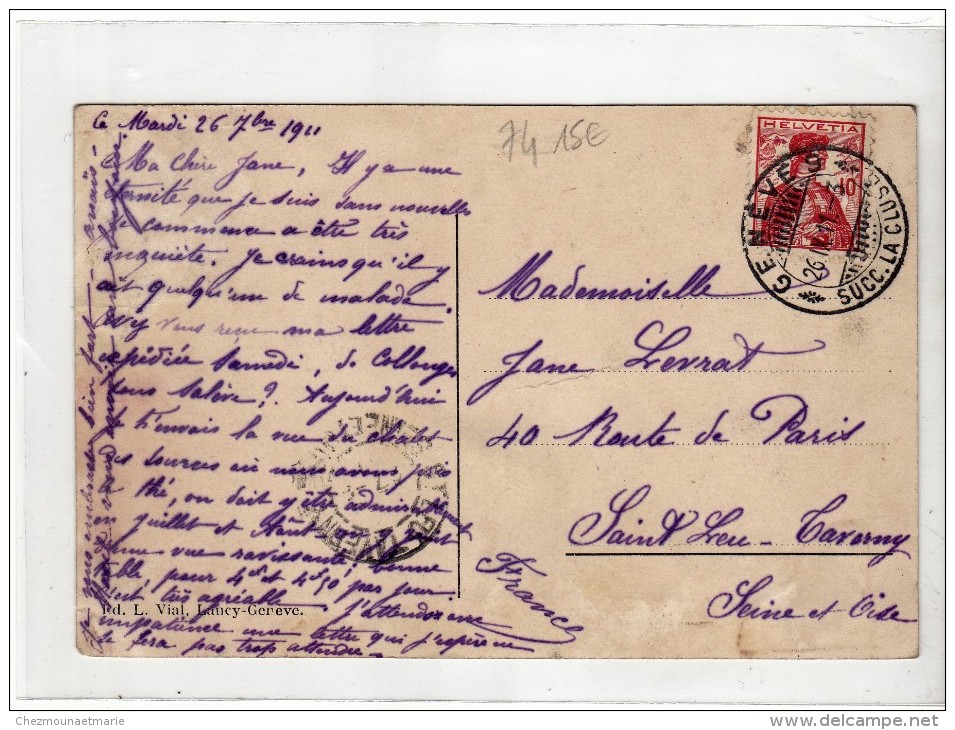 Ce Mardi 26 7bre 1911
Ma chère Jane, Il y a une
éternité que je suis sans nouvelles
je commence à être très
inquiète. Je crains qu'il y
ait quelqu'un de malade.
as-y vous reçu ma lettre
expédiée Samedi, de Collonges
sous Salève? Aujourd'hui
je t'envois la vue du chalet
des sources où nous avons pris
le thé, on doit y être admirablement
en juillet et Août
une vue ravissante, bonne
table, pour 4f et 4f50 par jour
c'est très agréable. J'attends avec
impatience une lettre qui j'espère ne
se fera pas trop attendre
Je vous embrasse bien fort
Ed. L. Vial, Lancy-Genève.
74 15E
HELVETIA
10
GENÈVE 9
26 IX 11
SUCC. LA CLUSE
Mademoiselle
Jane Levrat
40 Route de Paris
Saint Leu-Taverny
Seine et Oise
France
Chezmounaetmarie
www.delcampe.net